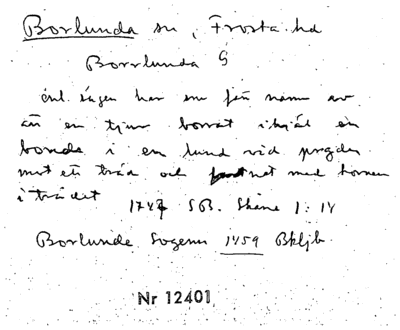 Borlunda sn, Frosta hd
Borrlunda S
enl. sägen har sn fått namn av
att en tjur borrat ihjäl en
bonde i en lund vid
mot ett träd och fastnat med hornen
i trädet 1747 SB. Skåne 1:14
Borlunde Sogenn 1459 Bkljb
Nr 12401